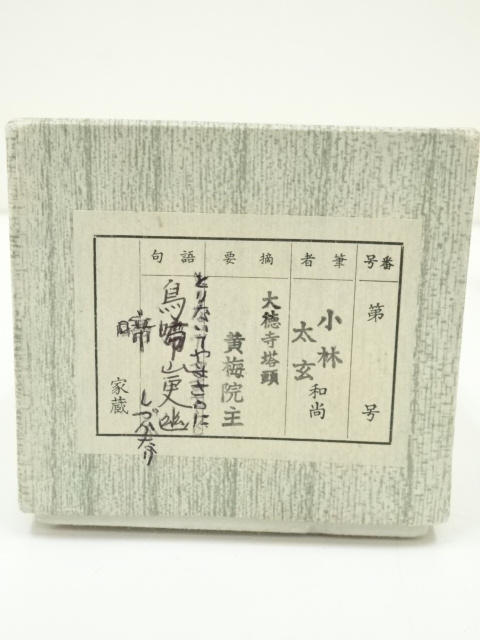 番号
第　号
筆者
小林
太玄
和尚
摘要
大徳寺塔頭
黄梅院主
語句
とりないてやまさらに
鳥啼山更幽
啼
しづかなり
家蔵